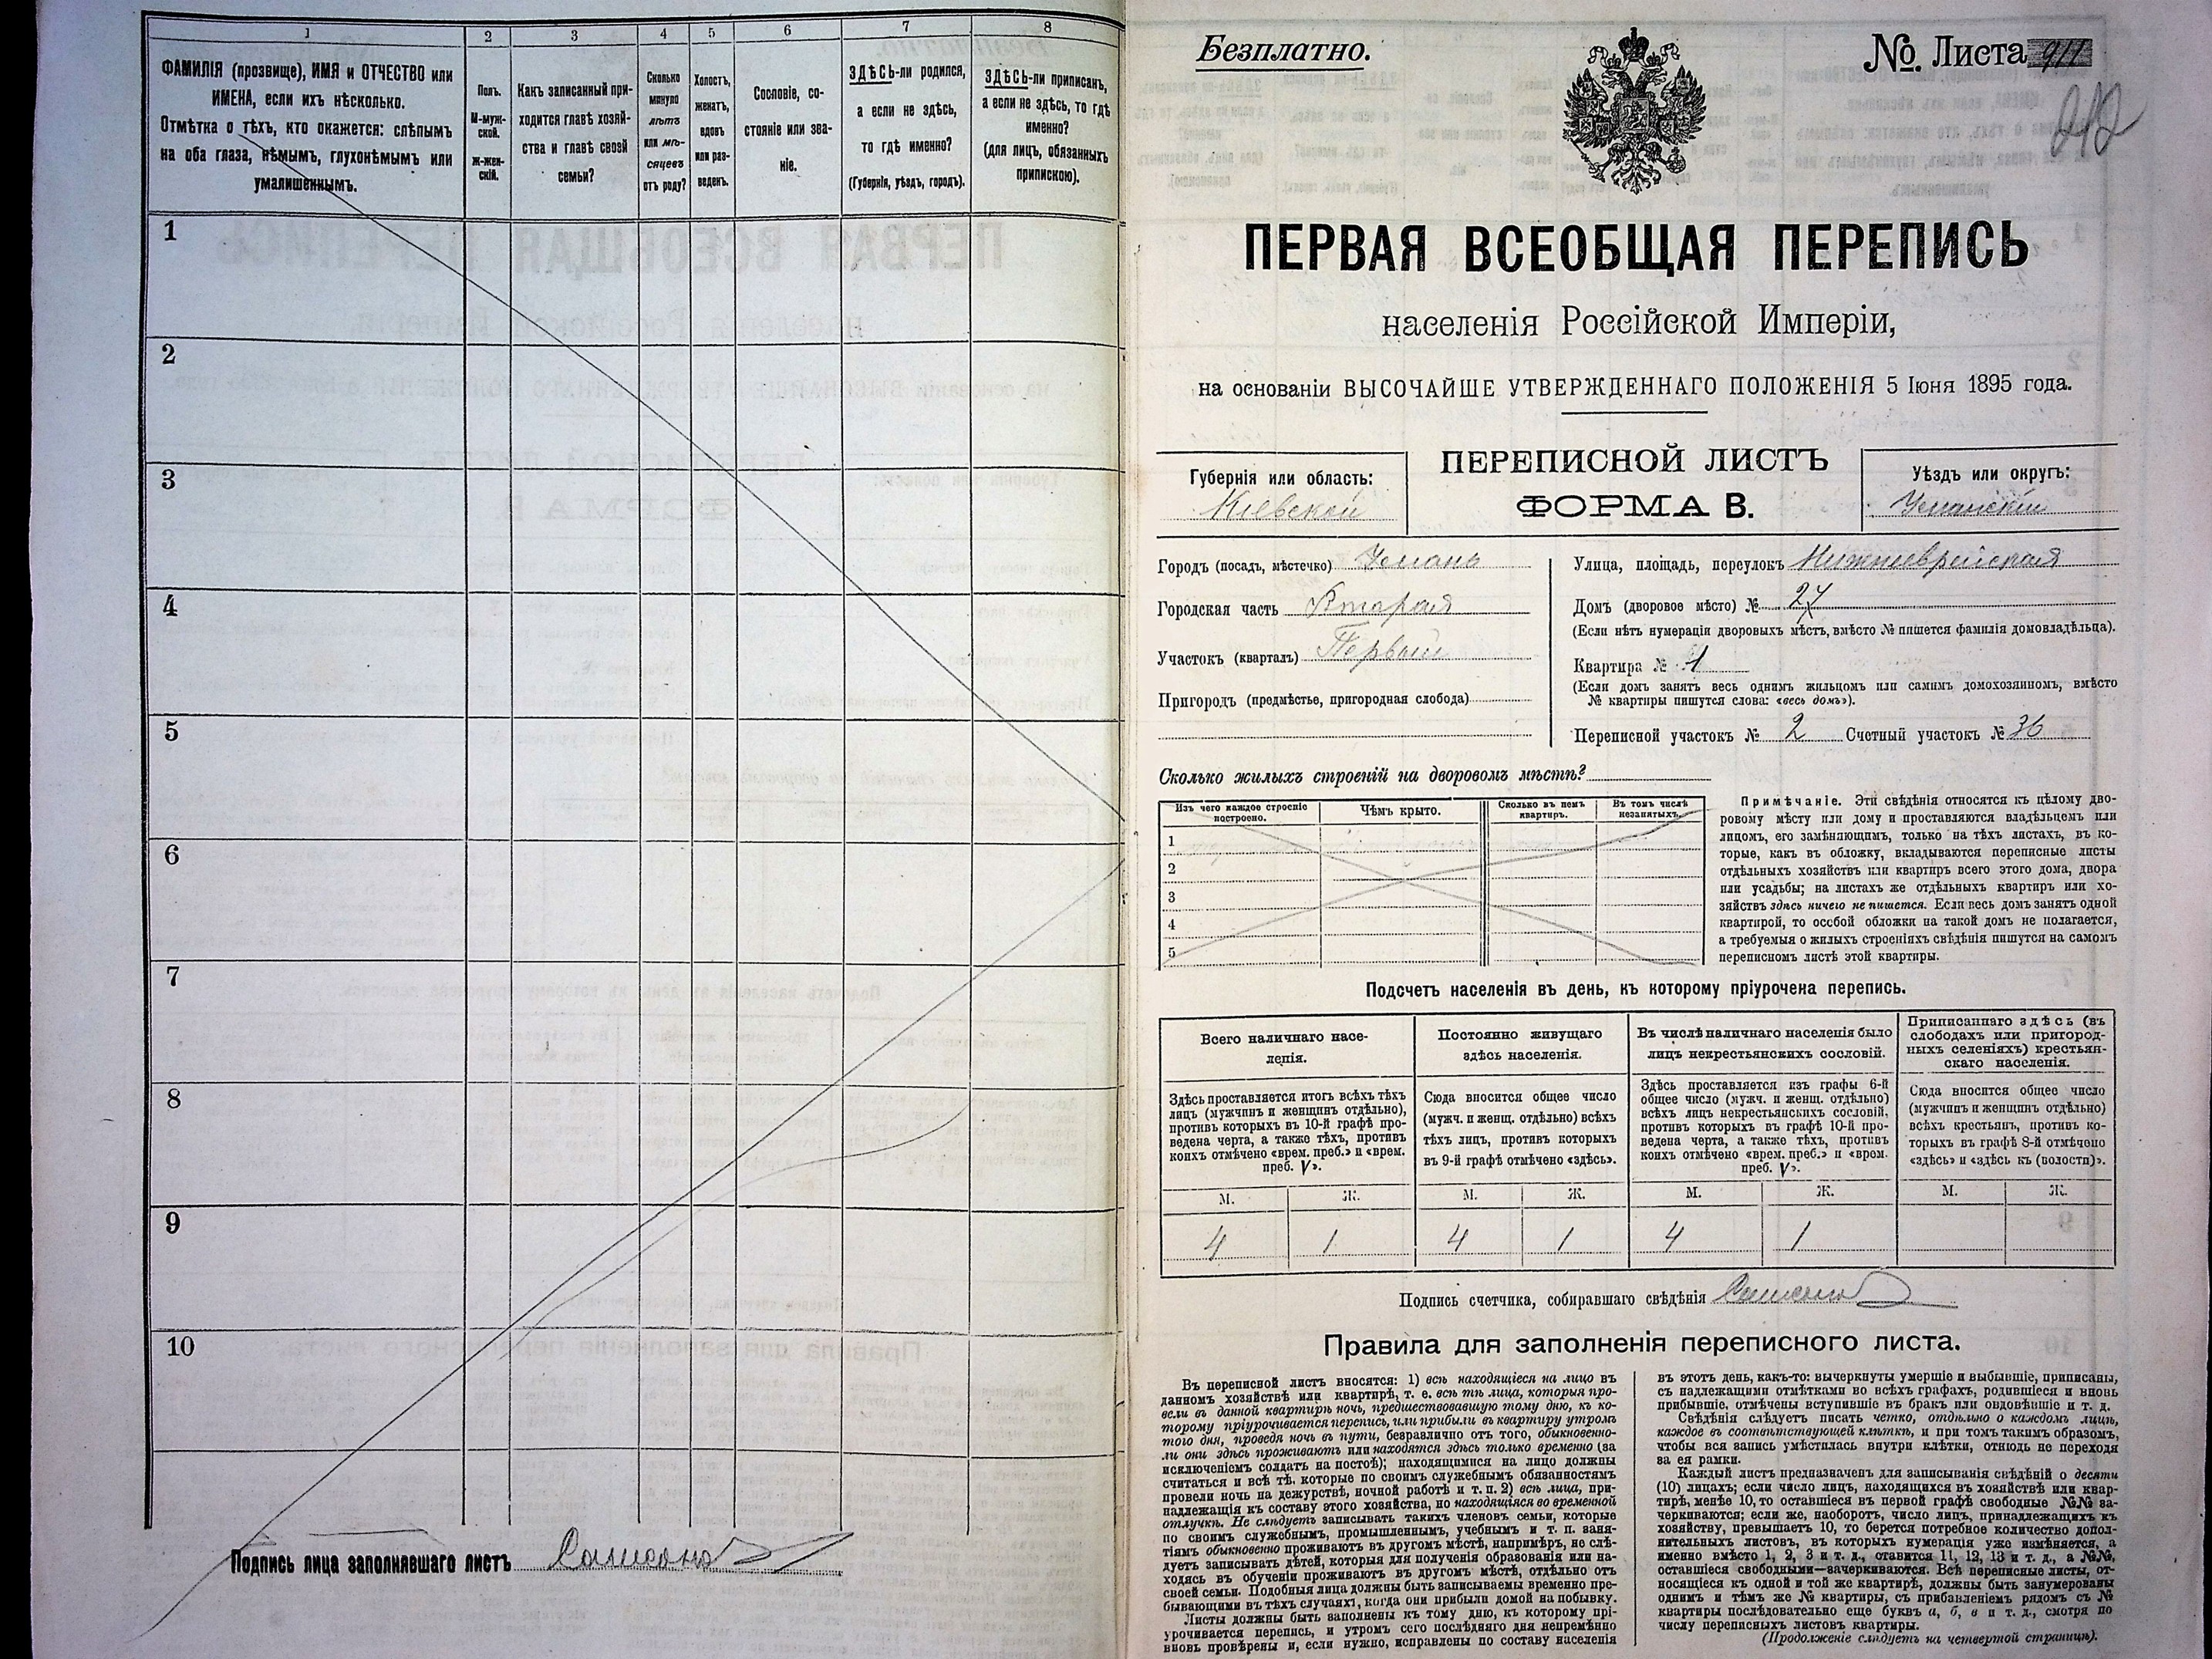 1 2 3 4 5 6 7 8
ФАМИЛІЯ (прозвище), ИМЯ и ОТЧЕСТВО или
ИМЕНА, если ихъ нѣсколько.
Отмѣтка о тѣхъ, кто окажется: слѣпымъ
на оба глаза, нѣмымъ, глухонѣмымъ или
умалишеннымъ.
Полъ.
М-муж-
ской.
ж-жен-
скій.
Какъ записанный при-
ходится главѣ хозяй-
ства и главѣ своей
семьи?
Сколько
минуло
лѣтъ
или мѣ-
сяцевъ
отъ роду?
Холостъ,
женатъ,
вдовъ
или раз-
веденъ.
Сословіе, со-
стояніе или зва-
ніе.
ЗДѢСЬ-ли родился,
а если не здѣсь,
то гдѣ именно?
(Губернія, уѣздъ, городъ).
ЗДѢСЬ-ли приписанъ,
а если не здѣсь, то гдѣ
именно?
(для лицъ, обязанныхъ
припискою).
1
2
3
4
5
6
7
8
9
10
Подпись лица заполнявшаго листъ
Безплатно.
№ Листа 911
212
ПЕРВАЯ ВСЕОБЩАЯ ПЕРЕПИСЬ
населенія Россійской Имперіи,
на основаніи ВЫСОЧАЙШЕ УТВЕРЖДЕННАГО ПОЛОЖЕНІЯ 5 Іюня 1895 года.
Губернія или область:
Кіевской
ПЕРЕПИСНОЙ ЛИСТЪ
ФОРМА В.
Уѣздъ или округъ:
Уманскій
Городъ (посадъ, мѣстечко) Умань
Городская часть Вторая
Участокъ (кварталъ) Первый
Пригородъ (предмѣстье, пригородная слобода)
Улица, площадь, переулокъ Нижнееврейская
Домъ (дворовое мѣсто) № 27
(Если нѣтъ нумераціи дворовыхъ мѣстъ, вмѣсто № пишется фамилія домовладѣльца).
Квартира № 1
(Если домъ занятъ весь однимъ жильцомъ или самимъ домохозяиномъ, вмѣсто
№ квартиры пишутся слова: «весь домъ»).
Переписной участокъ № 2 Счетный участокъ № 36
Сколько жилыхъ строеній на дворовомъ мѣстѣ?
Изъ чего каждое строеніе
построено.
Чѣмъ крыто.
Сколько въ немъ
квартиръ.
Въ томъ числѣ
незанятыхъ.
1
2
3
4
5
Примѣчаніе. Эти свѣдѣнія относятся къ цѣлому дво-
ровому мѣсту или дому и проставляются владѣльцемъ или
лицомъ, его замѣняющимъ, только на тѣхъ листахъ, въ ко-
торые, какъ въ обложку, вкладываются переписные листы
отдѣльныхъ хозяйствъ или квартиръ всего этого дома, двора
или усадьбы; на листахъ же отдѣльныхъ квартиръ или хо-
зяйствъ здѣсь ничего не пишется. Если весь домъ занятъ одной
квартирой, то особой обложки на такой домъ не полагается,
а требуемыя о жилыхъ строеніяхъ свѣдѣнія пишутся на самомъ
переписномъ листѣ этой квартиры.
Подсчетъ населенія въ день, къ которому пріурочена перепись.
Всего наличнаго насе-
ленія.
Постоянно живущаго
здѣсь населенія.
Въ числѣ наличнаго населенія было
лицъ некрестьянскихъ сословій.
Приписаннаго здѣсь (въ
слободахъ или пригород-
ныхъ селеніяхъ) крестьян-
скаго населенія.
Здѣсь проставляется итогъ всѣхъ тѣхъ
лицъ (мужчинъ и женщинъ отдѣльно),
противъ которыхъ въ 10-й графѣ про-
ведена черта, а также тѣхъ, противъ
коихъ отмѣчено «врем. преб.» и «врем.
преб. V».
Сюда вносится общее число
(мужч. и женщ. отдѣльно) всѣхъ
тѣхъ лицъ, противъ которыхъ
въ 9-й графѣ отмѣчено «здѣсь».
Здѣсь проставляется изъ графы 6-й
общее число (мужч. и женщ. отдѣльно)
всѣхъ лицъ некрестьянскихъ сословій,
противъ которыхъ въ графѣ 10-й про-
ведена черта, а также тѣхъ, противъ
коихъ отмѣчено «врем. преб.» и «врем.
преб. V».
Сюда вносится общее число
(мужчинъ и женщинъ отдѣльно)
всѣхъ крестьянъ, противъ ко-
торыхъ въ графѣ 8-й отмѣчено
«здѣсь» и «здѣсь къ (волости)».
М. Ж. М. Ж. М. Ж. М. Ж.
4 1 4 1 4 1
Подпись счетчика, собиравшаго свѣдѣнія
Правила для заполненія переписного листа.
Въ переписной листъ вносятся: 1) всѣ находящіеся на лицо въ
данномъ хозяйствѣ или квартирѣ, т. е. всѣ тѣ лица, которыя про-
вели въ данной квартирѣ ночь, предшествовавшую тому дню, къ ко-
торому пріурочивается перепись, или прибыли въ квартиру утромъ
того дня, проведя ночь въ пути, безразлично отъ того, обыкновенно-
ли они здѣсь проживаютъ или находятся здѣсь только временно (за
исключеніемъ солдатъ на постоѣ); находящимися на лицо должны
считаться и всѣ тѣ, которые по своимъ служебнымъ обязанностямъ
провели ночь на дежурствѣ, ночной работѣ и т. п. 2) всѣ лица, при-
надлежащія къ составу этого хозяйства, но находящіяся во временной
отлучкѣ. Не слѣдуетъ записывать такихъ членовъ семьи, которые
по своимъ служебнымъ, промышленнымъ, учебнымъ и т. п. заня-
тіямъ обыкновенно проживаютъ въ другомъ мѣстѣ, напримѣръ, не слѣ-
дуетъ записывать дѣтей, которыя для полученія образованія или на-
ходясь въ обученіи проживаютъ въ другомъ мѣстѣ, отдѣльно отъ
своей семьи. Подобныя лица должны быть записываемы временно пре-
бывающими въ тѣхъ случаяхъ, когда они прибыли домой на побывку.
Листы должны быть заполнены къ тому дню, къ которому прі-
урочивается перепись, и утромъ сего послѣдняго дня непремѣнно
вновь провѣрены и, если нужно, исправлены по составу населенія
въ этотъ день, какъ-то: вычеркнуты умершіе и выбывшіе, приписаны,
съ надлежащими отмѣтками во всѣхъ графахъ, родившіеся и вновь
прибывшіе, отмѣчены вступившіе въ бракъ или овдовѣвшіе и т. д.
Свѣдѣнія слѣдуетъ писать четко, отдѣльно о каждомъ лицѣ,
каждое въ соотвѣтствующей клѣткѣ, и при томъ такимъ образомъ,
чтобы вся запись умѣстилась внутри клѣтки, отнюдь не переходя
за ея рамки.
Каждый листъ предназначенъ для записыванія свѣдѣній о десяти
(10) лицахъ; если число лицъ, находящихся въ хозяйствѣ или квар-
тирѣ, менѣе 10, то оставшіеся въ первой графѣ свободные №№ за-
черкиваются; если же, наоборотъ, число лицъ, принадлежащихъ къ
хозяйству, превышаетъ 10, то берется потребное количество допол-
нительныхъ листовъ, въ которыхъ нумерація уже измѣняется, а
именно вмѣсто 1, 2, 3 и т. д., ставится 11, 12, 13 и т. д., а №№,
оставшіеся свободными—зачеркиваются. Всѣ переписные листы, от-
носящіеся къ одной и той же квартирѣ, должны быть занумерованы
однимъ и тѣмъ же № квартиры, съ прибавленіемъ рядомъ съ №
квартиры послѣдовательно еще буквъ а, б, в и т. д., смотря по
числу переписныхъ листовъ квартиры.
(Продолженіе слѣдуетъ на четвертой страницѣ).